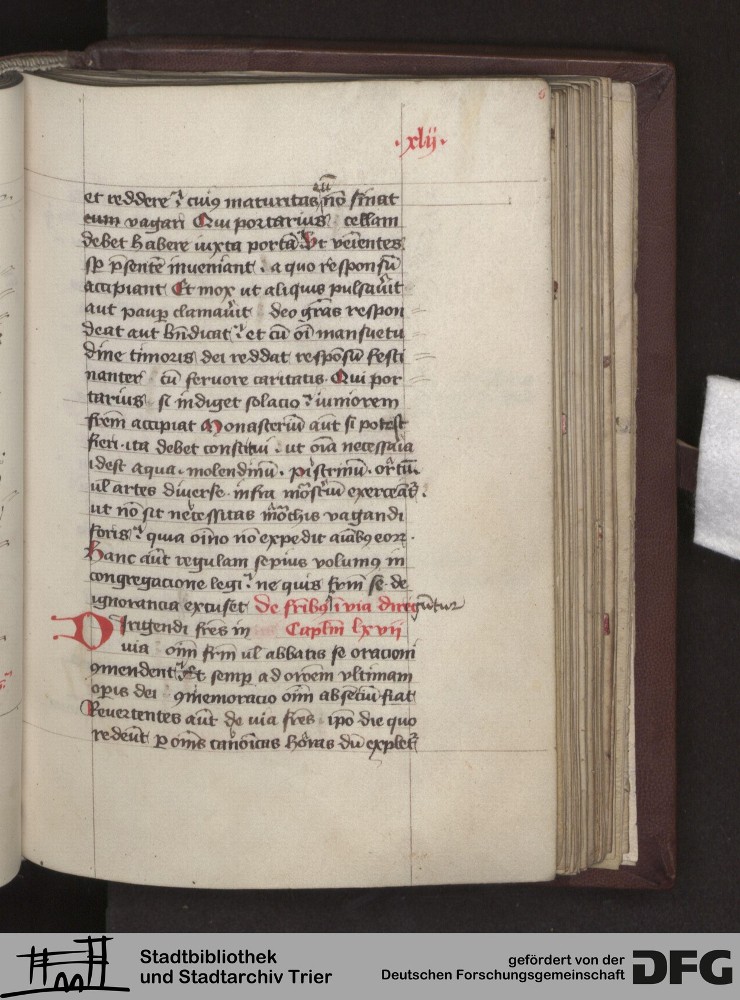 ·xlij·
et reddere cui9 maturitas eū nō sinat
eum vagari Qui portarius cellam
debet habere iuxta portā Vt veientes
sp p̄sentē inueniant · a quo responsū
accipiant Et mox ut aliquis pulsau̾it
aut paup clamau̾it deo gr̄as respon
deat aut bn̄dicat et cū oī mansuetu
dine timoris dei reddat respōsū festi
nanter cū feruore caritatis · Qui por
tarius si indiget solacio iuniorem
frēm accipiat Monasteriū aūt si potest
fieri · ita debet constitui · ut oīa necessaia
idest aqua · molendinū · pistrinū · ortū
ul artes diuerse · infra mōst̾iū exerceāt̾ ·
ut nō sit necessitas mōchis vagandi
foris quia oīno nō expedit aīab9 eoꝝ ·
Hanc aūt regulam sepius volum9 in
congregacione legi ne quis frm̄ se de
ignorancia excuset De frib9 ī via dirigūtur
Dirigendi frēs in Caplm̄ lxvii
via oīm frm̄ ul abbatis se oracioni
ꝯmendent Et semp ad oroēm vltimam
opis dei ꝯmemoracio oīm absecīū fiat
Reuertentes aūt de via frēs ipō die quo
redeūt p om̄s canōicas horas dū explet̾
Stadtbibliothek
und Stadtarchiv Trier
gefördert von der
Deutschen Forschungsgemeinschaft
DFG